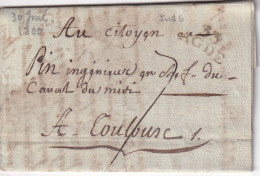 30 Juil
1800
Ind 6
Au citoyen
33
AGDE
Pin ingénieur en chef du
Canal du midi
A Toulouse